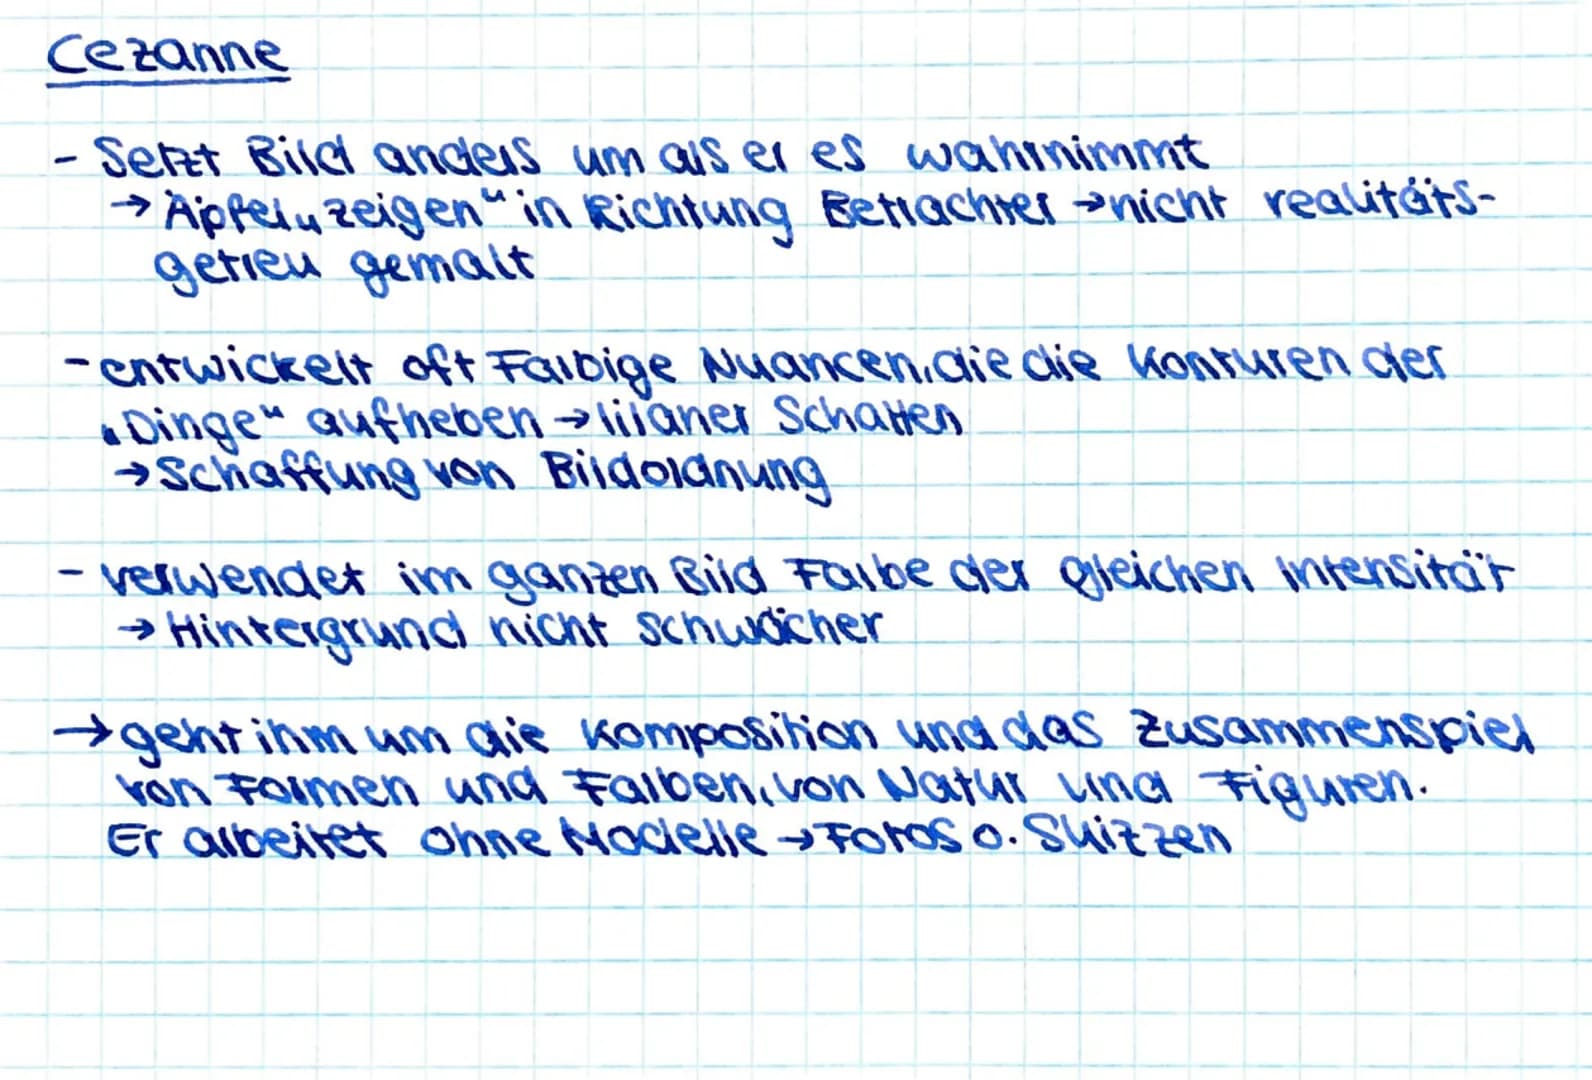 Cezanne
- Setzt Bild anders um als er es wahrnimmt
→ Äpfel „zeigen“ in Richtung Betrachter → nicht realitäts-
getreu gemalt
- entwickelt oft Farbige Nuancen, die die Konturen der
„Dinge“ aufheben → lilaner Schatten
→ Schaffung von Bildordnung
- verwendet im ganzen Bild Farbe der gleichen Intensität
→ Hintergrund nicht schwächer
→ geht ihm um die Komposition und das Zusammenspiel
von Formen und Farben, von Natur und Figuren.
Er arbeitet ohne Modelle → Fotos o. Skizzen